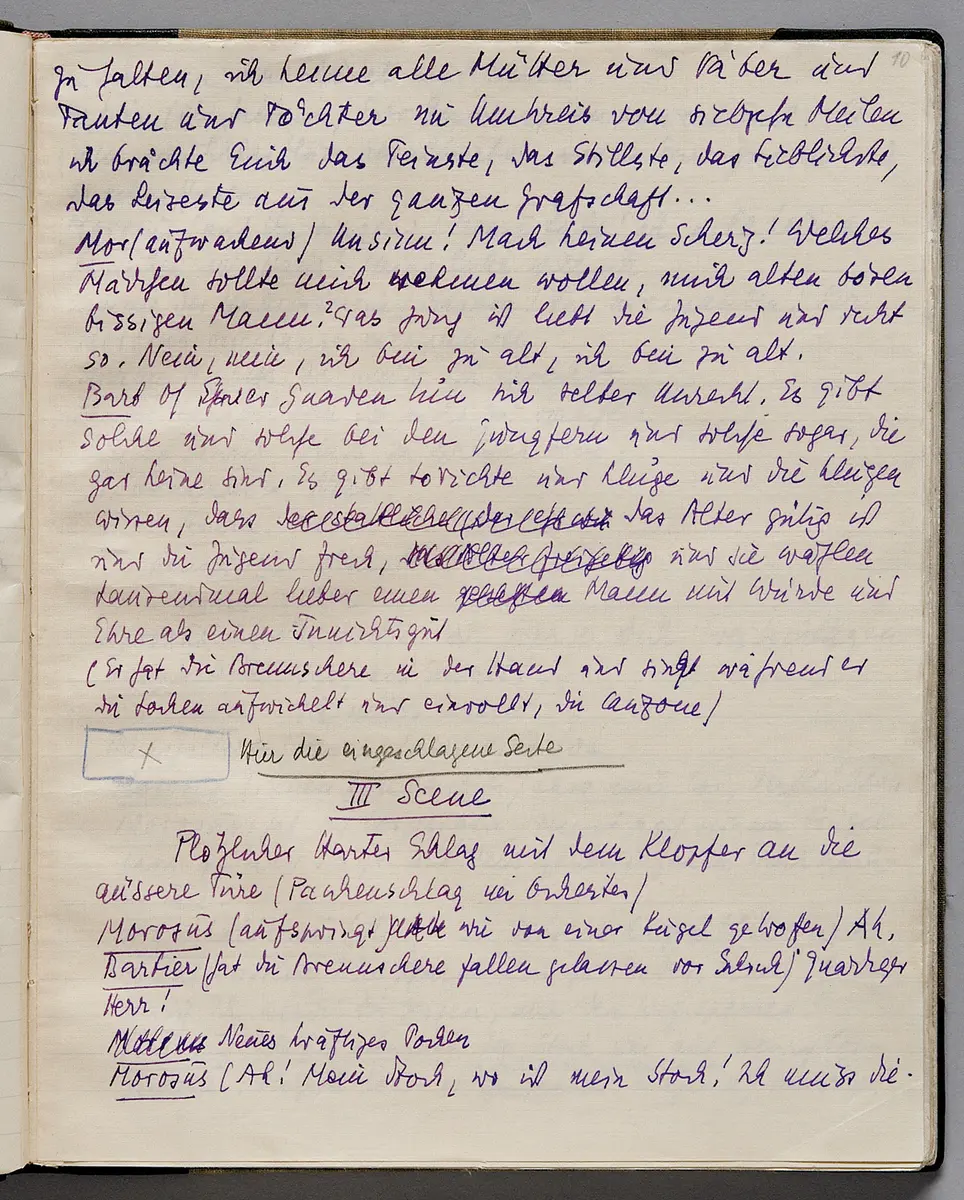 10
zu halten, ich kenne alle Mütter und Väter und
Tanten und Töchter im Umkreis von siebzehn Meilen
ich brächte Euch das Feinste, das Stillste, das Lieblichste,
das Leiseste aus der ganzen Grafschaft...
Mor (aufwachend) Unsinn! Mach keinen Scherz! Welches
Mädchen sollte mich nehmen wollen, mich alten bösen
bissigen Mann? Was jung ist liebt die Jugend und recht
so. Nein, nein, ich bin zu alt, ich bin zu alt.
Barb O Euer Gnaden tun sich selber Unrecht. Es gibt
solche und solche bei den Jungfern und solche sogar, die
gar keine sind. Es gibt törichte und kluge und die klugen
wissen, dass das Alter gütig ist
und die Jugend frech, und sie wählen
tausendmal lieber einen Mann mit Würde und
Ehre als einen Tunichtsgut
(Er hat die Brennschere in der Hand und singt während er
die Locken aufwickelt und einrollt, die Canzone)
X Hier die eingeschlagene Seite
III Scene
Plötzlicher Harter Schlag mit dem Klopfer an die
äussere Türe (Paukenschlag im Orchester)
Morosus (aufspringt wie von einer Kugel getroffen) Ah,
Barbier (hat die Brennschere fallen gelassen vor Schreck) Gnädiger
Herr!
Neues kräftiges Pochen
Morosus (Ah! Mein Stock, wo ist mein Stock! Ich muss die-